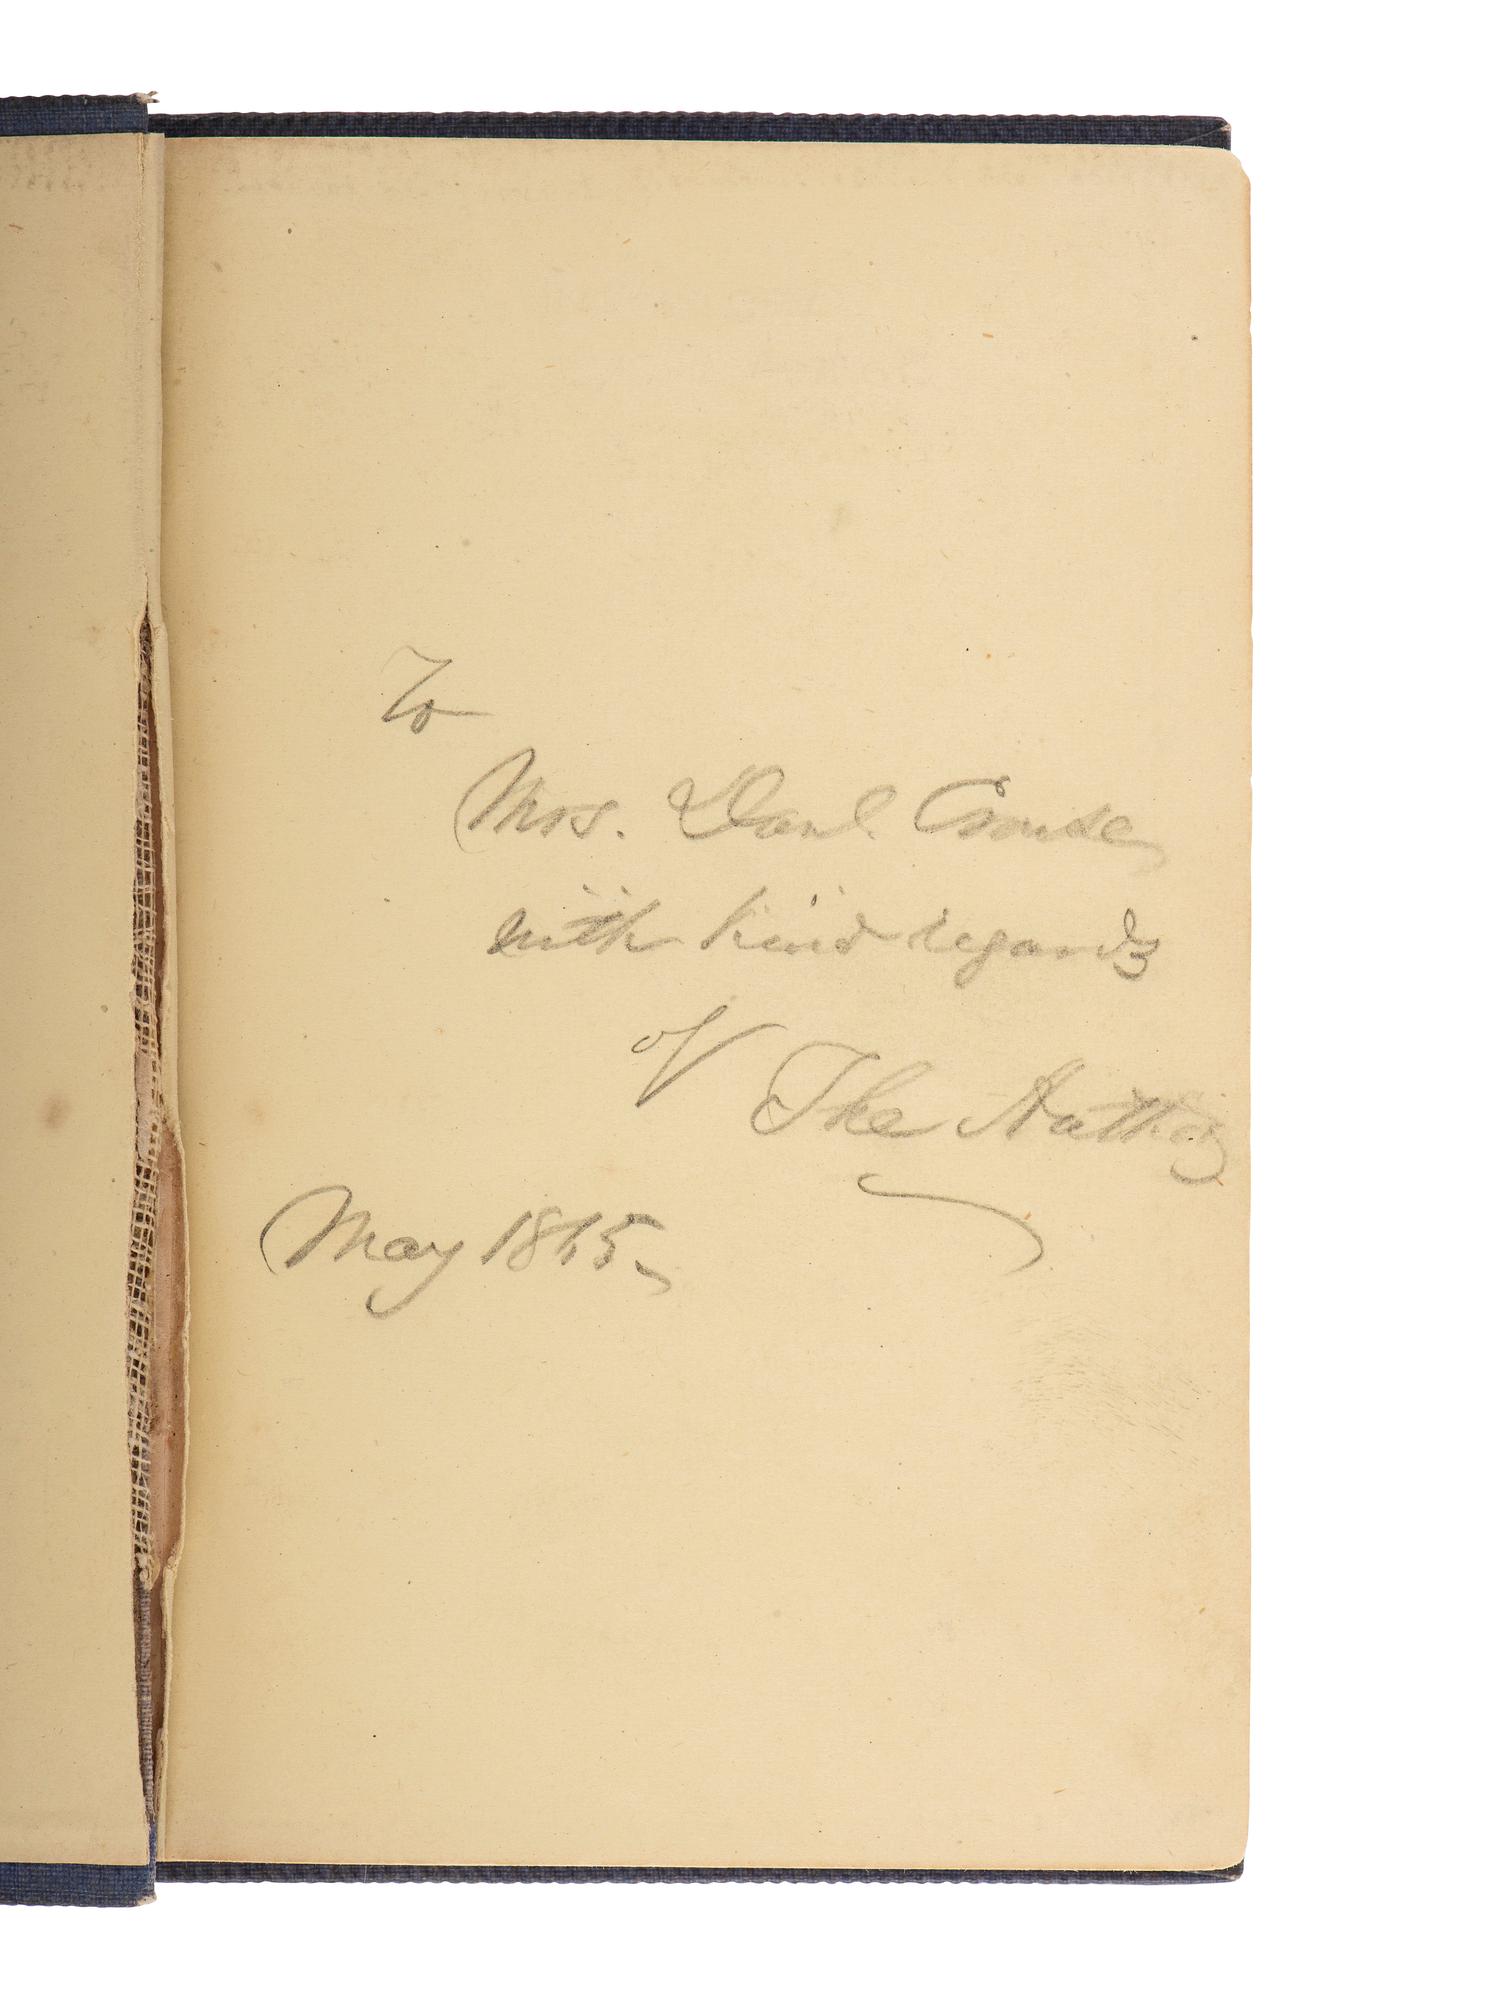 To
Mrs. Danl. Crouse
with kind regards
of The Author
May